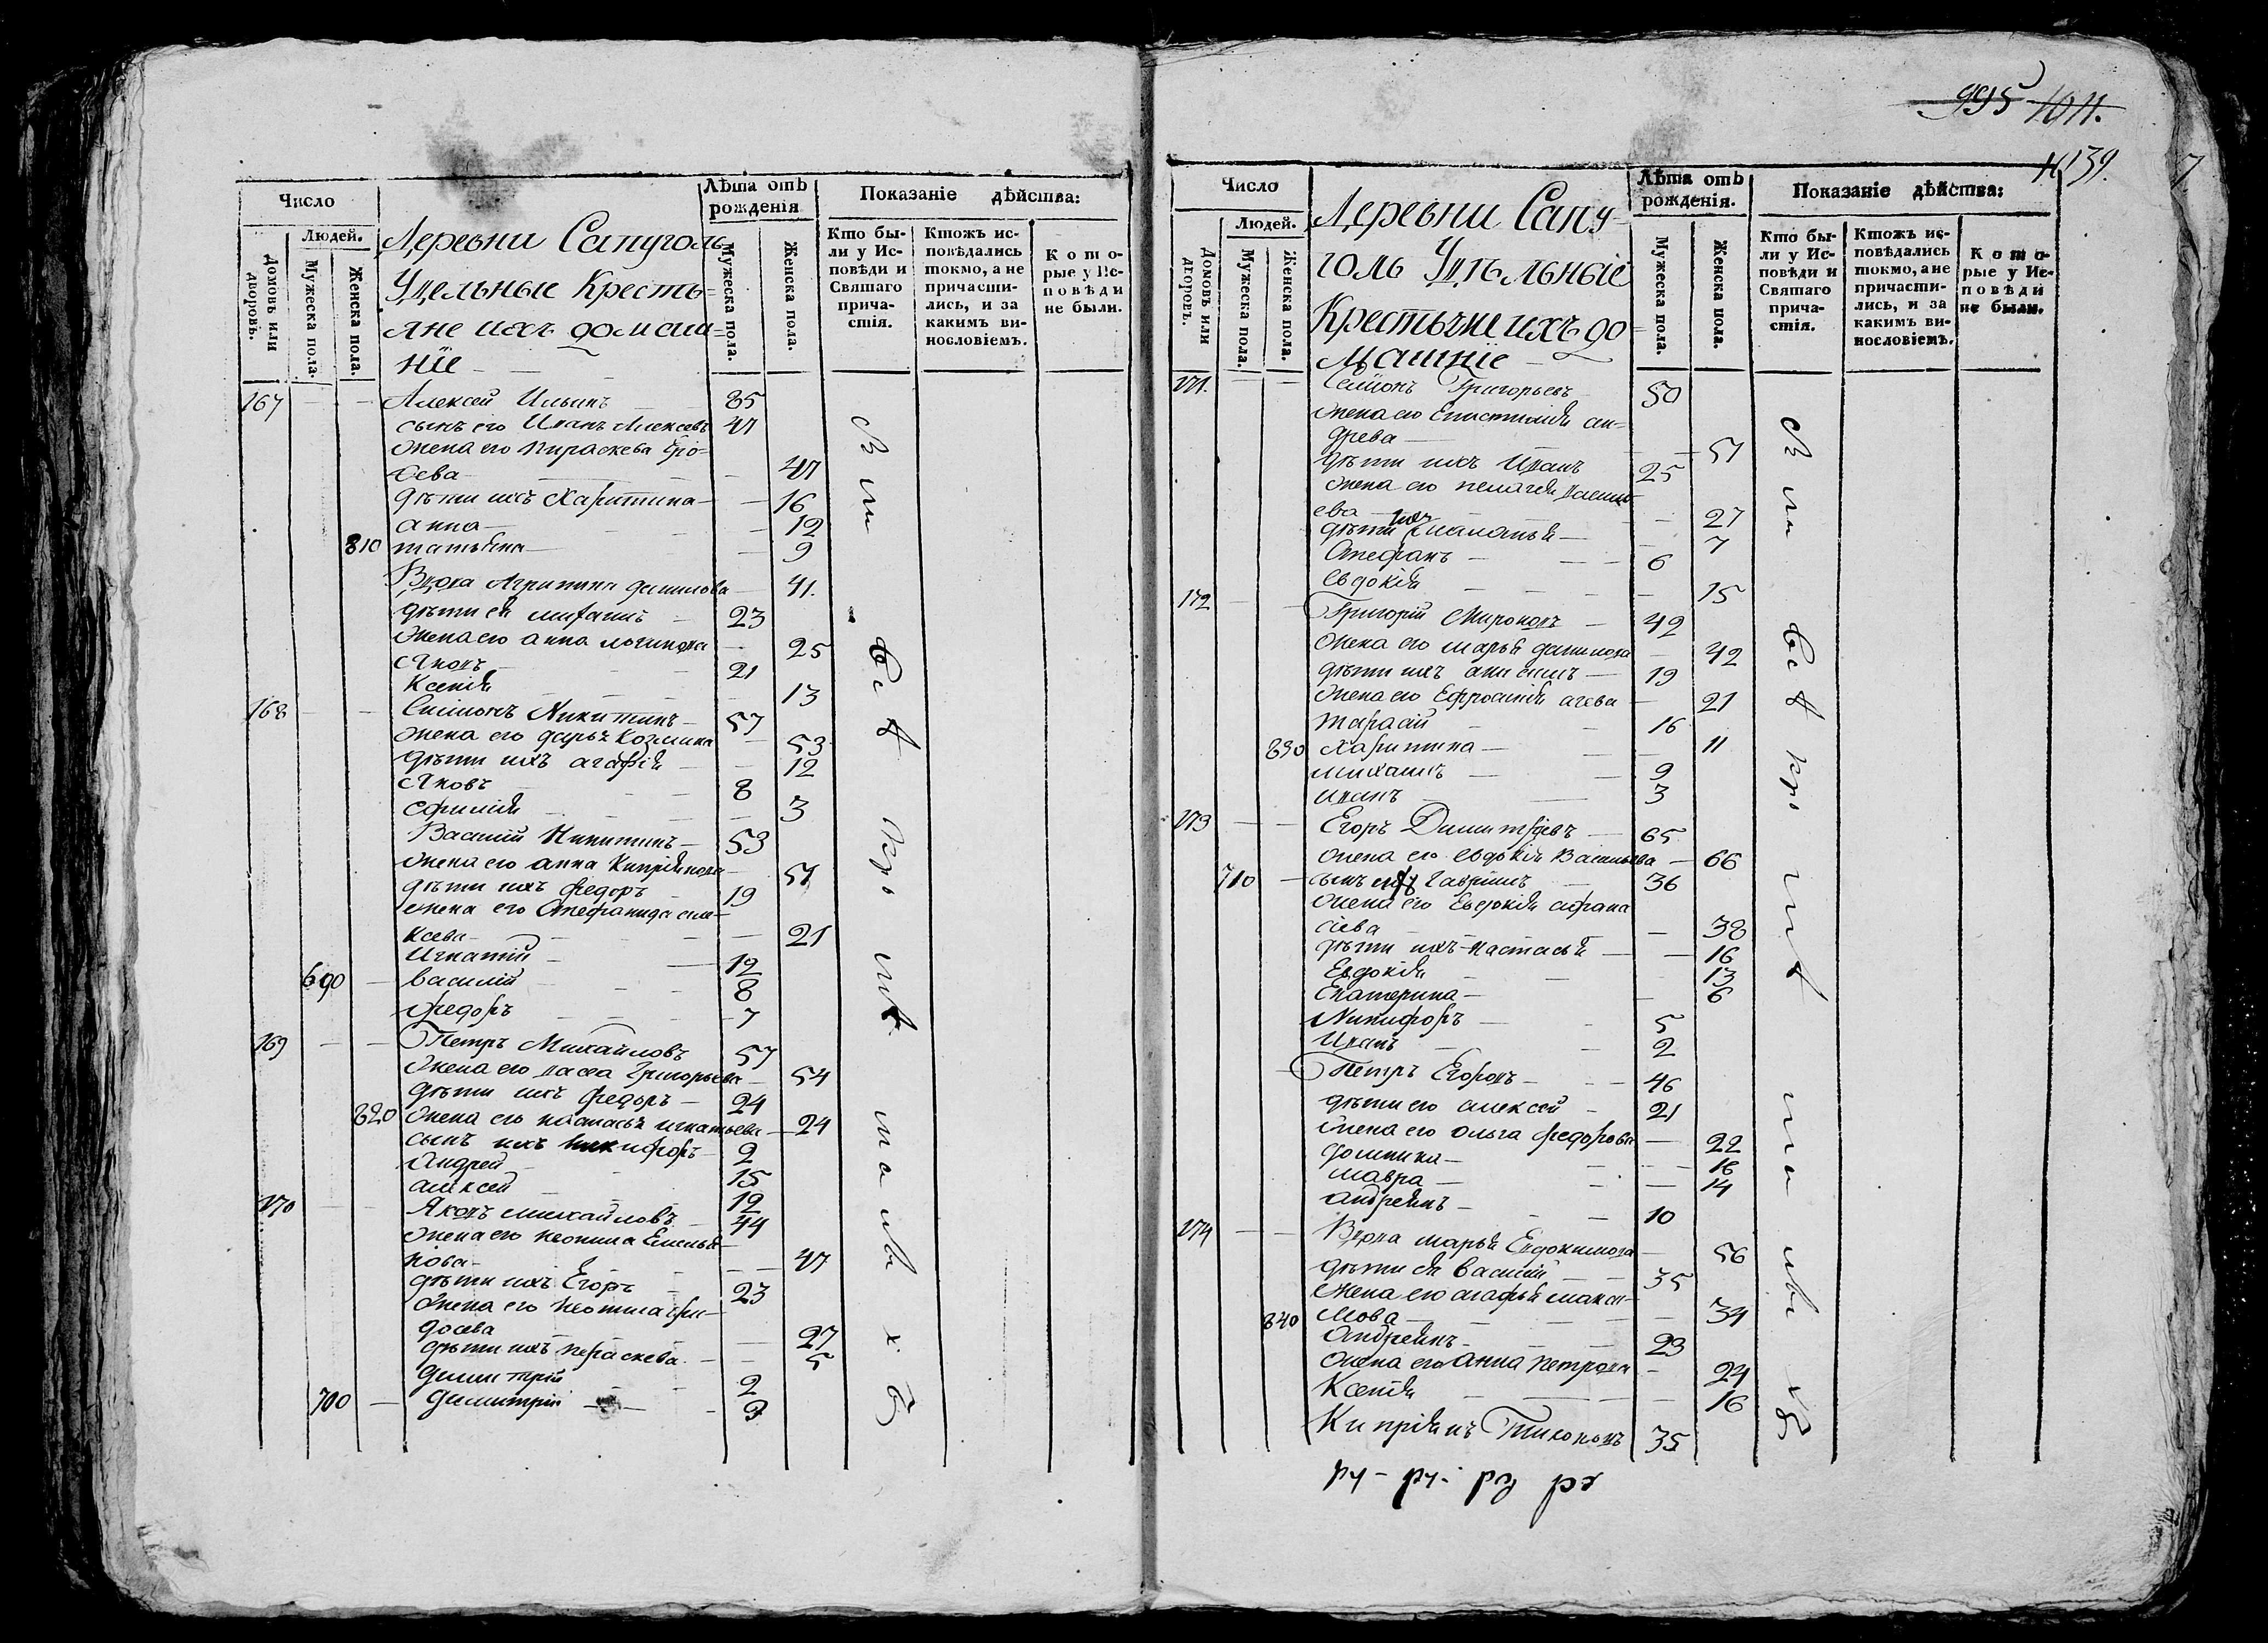 Число
Людей.
Домовъ или дворовъ.
Мужеска пола.
Женска пола.
Деревни Сапуголь
Удельные Кресть=
яне ихъ домаш=
ніе
Лѣта отъ рожденія
Мужеска пола.
Женска пола.
Показаніе дѣйства:
Кто бы-
ли у Ис-
повѣди и
Святаго
прича-
стія.
Ктожъ ис-
повѣдались
токмо, а не
причасти-
лись, и за
какимъ ви-
нословіемъ.
Кото-
рые у Ис-
повѣди
не были.
167 Алексей Ильинъ 85
сынъ его Иванъ Алексевъ 47
жена его Параскева Еро-
феева 47
дѣти ихъ Харитина 16
анна 12
810 татьяна 9
Вдова Агрипина данилова 41.
дѣти ея 23
жена его анна логинова 25
Яковъ 21
Ксенія 13
168 Симионъ Никитинъ 57
жена его дарья Козмина 53
дѣти ихъ агафія 12
Яковъ 8
Ефимія 3
Василій Никитинъ 53
жена его анна Кипріянова 51
дѣти ихъ федоръ 19
жена его Стефанида але-
ксева 21
Игнатий 12
690 василій 8
федоръ 7
169 Петръ Михайловъ 57
жена его васса Григорьева 54
дѣти ихъ федоръ 24
820 жена его настасья игнатьева 24
сынъ ихъ никифоръ 2
Андрей 15
алексей 12
170 Яковъ михайловъ 44
жена его неонила Емелья-
нова 47
дѣти ихъ Егоръ 23
жена его неонила
досева 27
дѣти ихъ параскева 5
димитрій 2
700 димитрій 9
995 1011.
1139.
Число
Людей.
Домовъ или дворовъ.
Мужеска пола.
Женска пола.
Деревни Сапу-
голь Удѣльныіе
Крестьяне ихъ до=
машніе
Лѣта отъ рожденія.
Мужеска пола.
Женска пола.
Показаніе дѣйства:
Кто бы-
ли у Ис-
повѣди и
Святаго
прича-
стія.
Ктожъ ис-
повѣдались
токмо, а не
причасти-
лись, и за
какимъ ви-
нословіемъ.
Кото-
рые у Ис-
повѣди
не были.
171. Семионъ Григорьевъ 50
жена его Епистимія ан=
древа 51
дѣти ихъ Иванъ 25
жена его пелагея васил-
ева 27
дѣти ихъ 7
Стефанъ 6
евдокія 15
172 Григорій Мироновъ 42
жена его марья данилова 42
дѣти ихъ анисимъ 19
жена его Ефросинія агева 21
тарасій 16
830 харитина 11
михаилъ 9
иванъ 3
173 Егоръ Димитріевъ 65
жена его евдокія Васильева 66
710 сынъ ихъ Гавріилъ 36
жена его Евдокія афана
сіева 38
дѣти ихъ настасья 16
Евдокія 13
Екатерина 6
Никифоръ 5
Иванъ 2
Петръ Егоровъ 46
дѣти его алексей 21
жена его ольга федорова 22
домника 16
мавра 14
андреянъ 10
174 Вдова марья Евдокимова 56
дѣти ея василій 35
жена его агафья макси-
840 мова 34
Андреянъ 23
жена его Анна петрова 24
Ксенія 16
Кипріянъ Тихоновъ 35